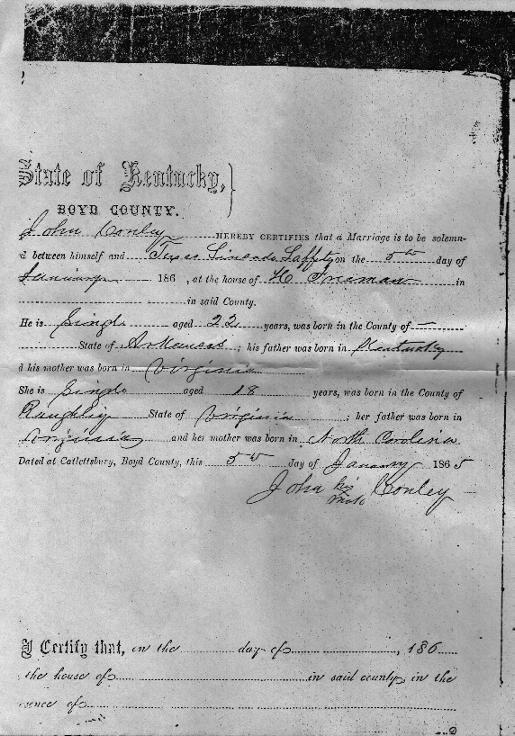 State of Kentucky,
BOYD COUNTY.
John Conley HEREBY CERTIFIES that a Marriage is to be solemn-
d between himself and Laffety on the 5th day of
January 186 , at the house of H in
in said County.
He is Single aged 22 years, was born in the County of —
State of Arkansas ; his father was born in Kentucky
d his mother was born in Virginia
She is Single aged 18 years, was born in the County of
State of Virginia ; her father was born in
Virginia and her mother was born in North Carolina.
Dated at Catlettsburg, Boyd County, this 5th day of January 1865
John his Conley
mark
I Certify that, in the day of , 186
the house of in said county, in the
sence of